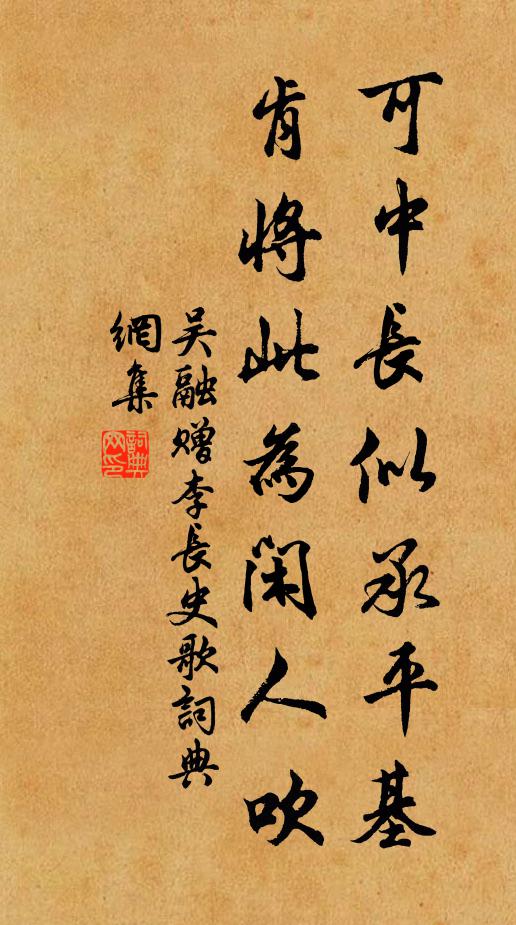 可中長似承平基
肯將此為閑人吹
吳融贈李長史歌詞典
網集
詞典
网印